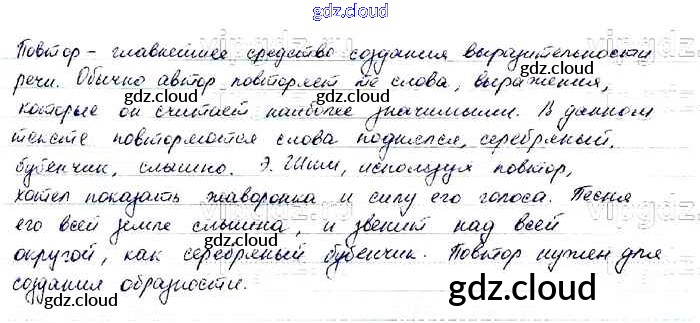 gdz.cloud
Повтор – главнейшее средство создания выразительности
речи. Обычно автор повторяет те слова, выражения,
которые он считает наиболее значимыми. В данном
тексте повторяются слова поднялся, серебряный,
бубенчик, слышно. Э. Шим, используя повтор,
хотел показать жаворонка и силу его голоса. Песня
его всей земле слышна, и звенит над всей
округой, как серебряный бубенчик. Повтор нужен для
создания образности.
gdz.cloud
gdz.cloud
gdz.cloud
gdz.cloud
gdz.cloud
gdz.cloud
gdz.cloud